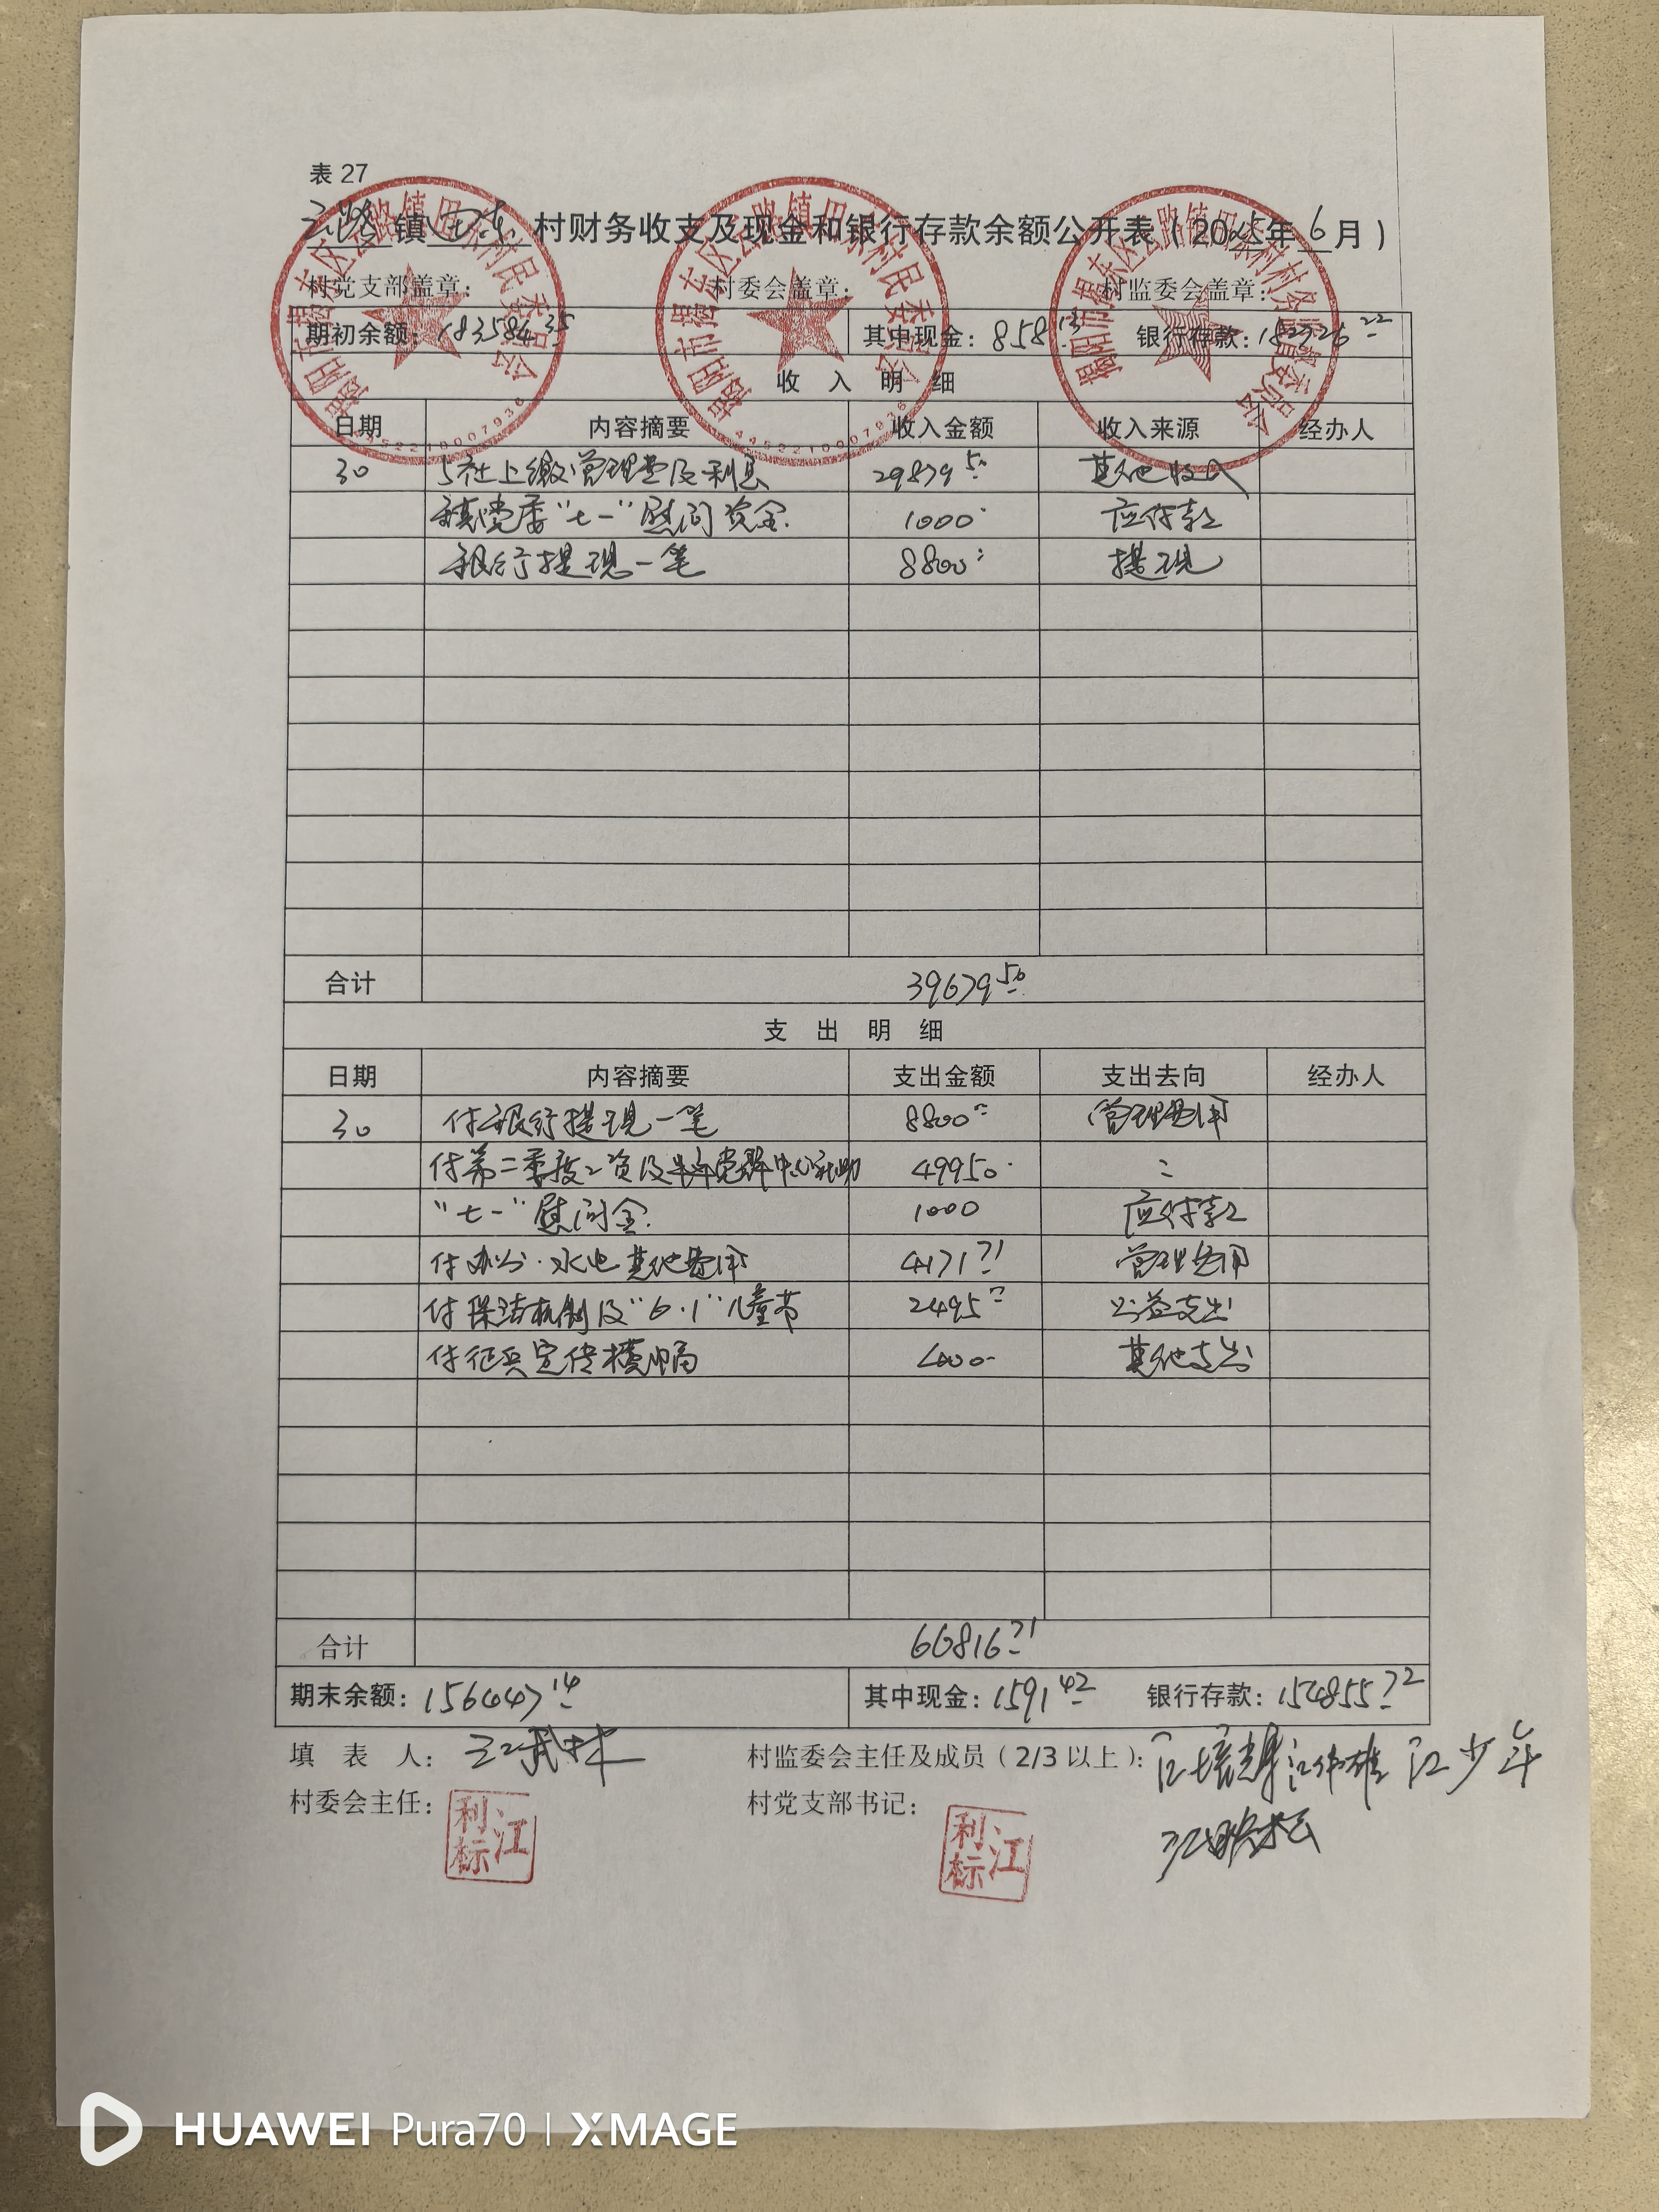 表 27
云路镇田东村财务收支及现金和银行存款余额公开表（2025年6月）
村党支部盖章： 村委会盖章： 村监委会盖章：
期初余额：183584.35 其中现金：858.13 银行存款：182726.22
收 入 明 细
日期 内容摘要 收入金额 收入来源 经办人
30 5社上缴管理费及利息 29879.50 其他收入
镇党委“七一”慰问资金 1000 应付款
银行提现一笔 8800 提现
合计 39679.50
支 出 明 细
日期 内容摘要 支出金额 支出去向 经办人
30 付银行提现一笔 8800 管理费用
付第二季度工资及半年党群中心补助 49950 〃
“七一”慰问金 1000 应付款
付办公.水电其他费用 4171.71 管理费用
付保洁机制及“6.1”儿童节 2495 公益支出
付征兵宣传横幅 400 其他支出
合计 66816.71
期末余额：156447.14 其中现金：1591.42 银行存款：154855.72
填 表 人： 村监委会主任及成员（2/3 以上）： 江少年
村委会主任：江利标 村党支部书记：江利标
HUAWEI Pura70 | XMAGE